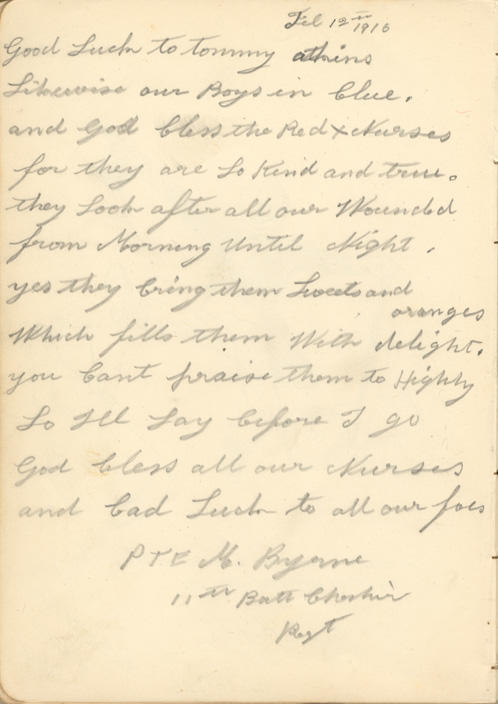 Feb 12th 1916
Good Luck to tommy atkins
Likewise our Boys in blue.
and God bless the Red x Nurses
for they are So Kind and true.
they Look after all our Wounded
from Morning Until Night.
yes they bring them Sweets and
oranges
Which fills them With delight.
you Cant praise them to Highly
So Ill Say before I go
God bless all our Nurses
and bad Luck to all our foes
PTE M. Byrne
11th Batt Cheshir
Regt